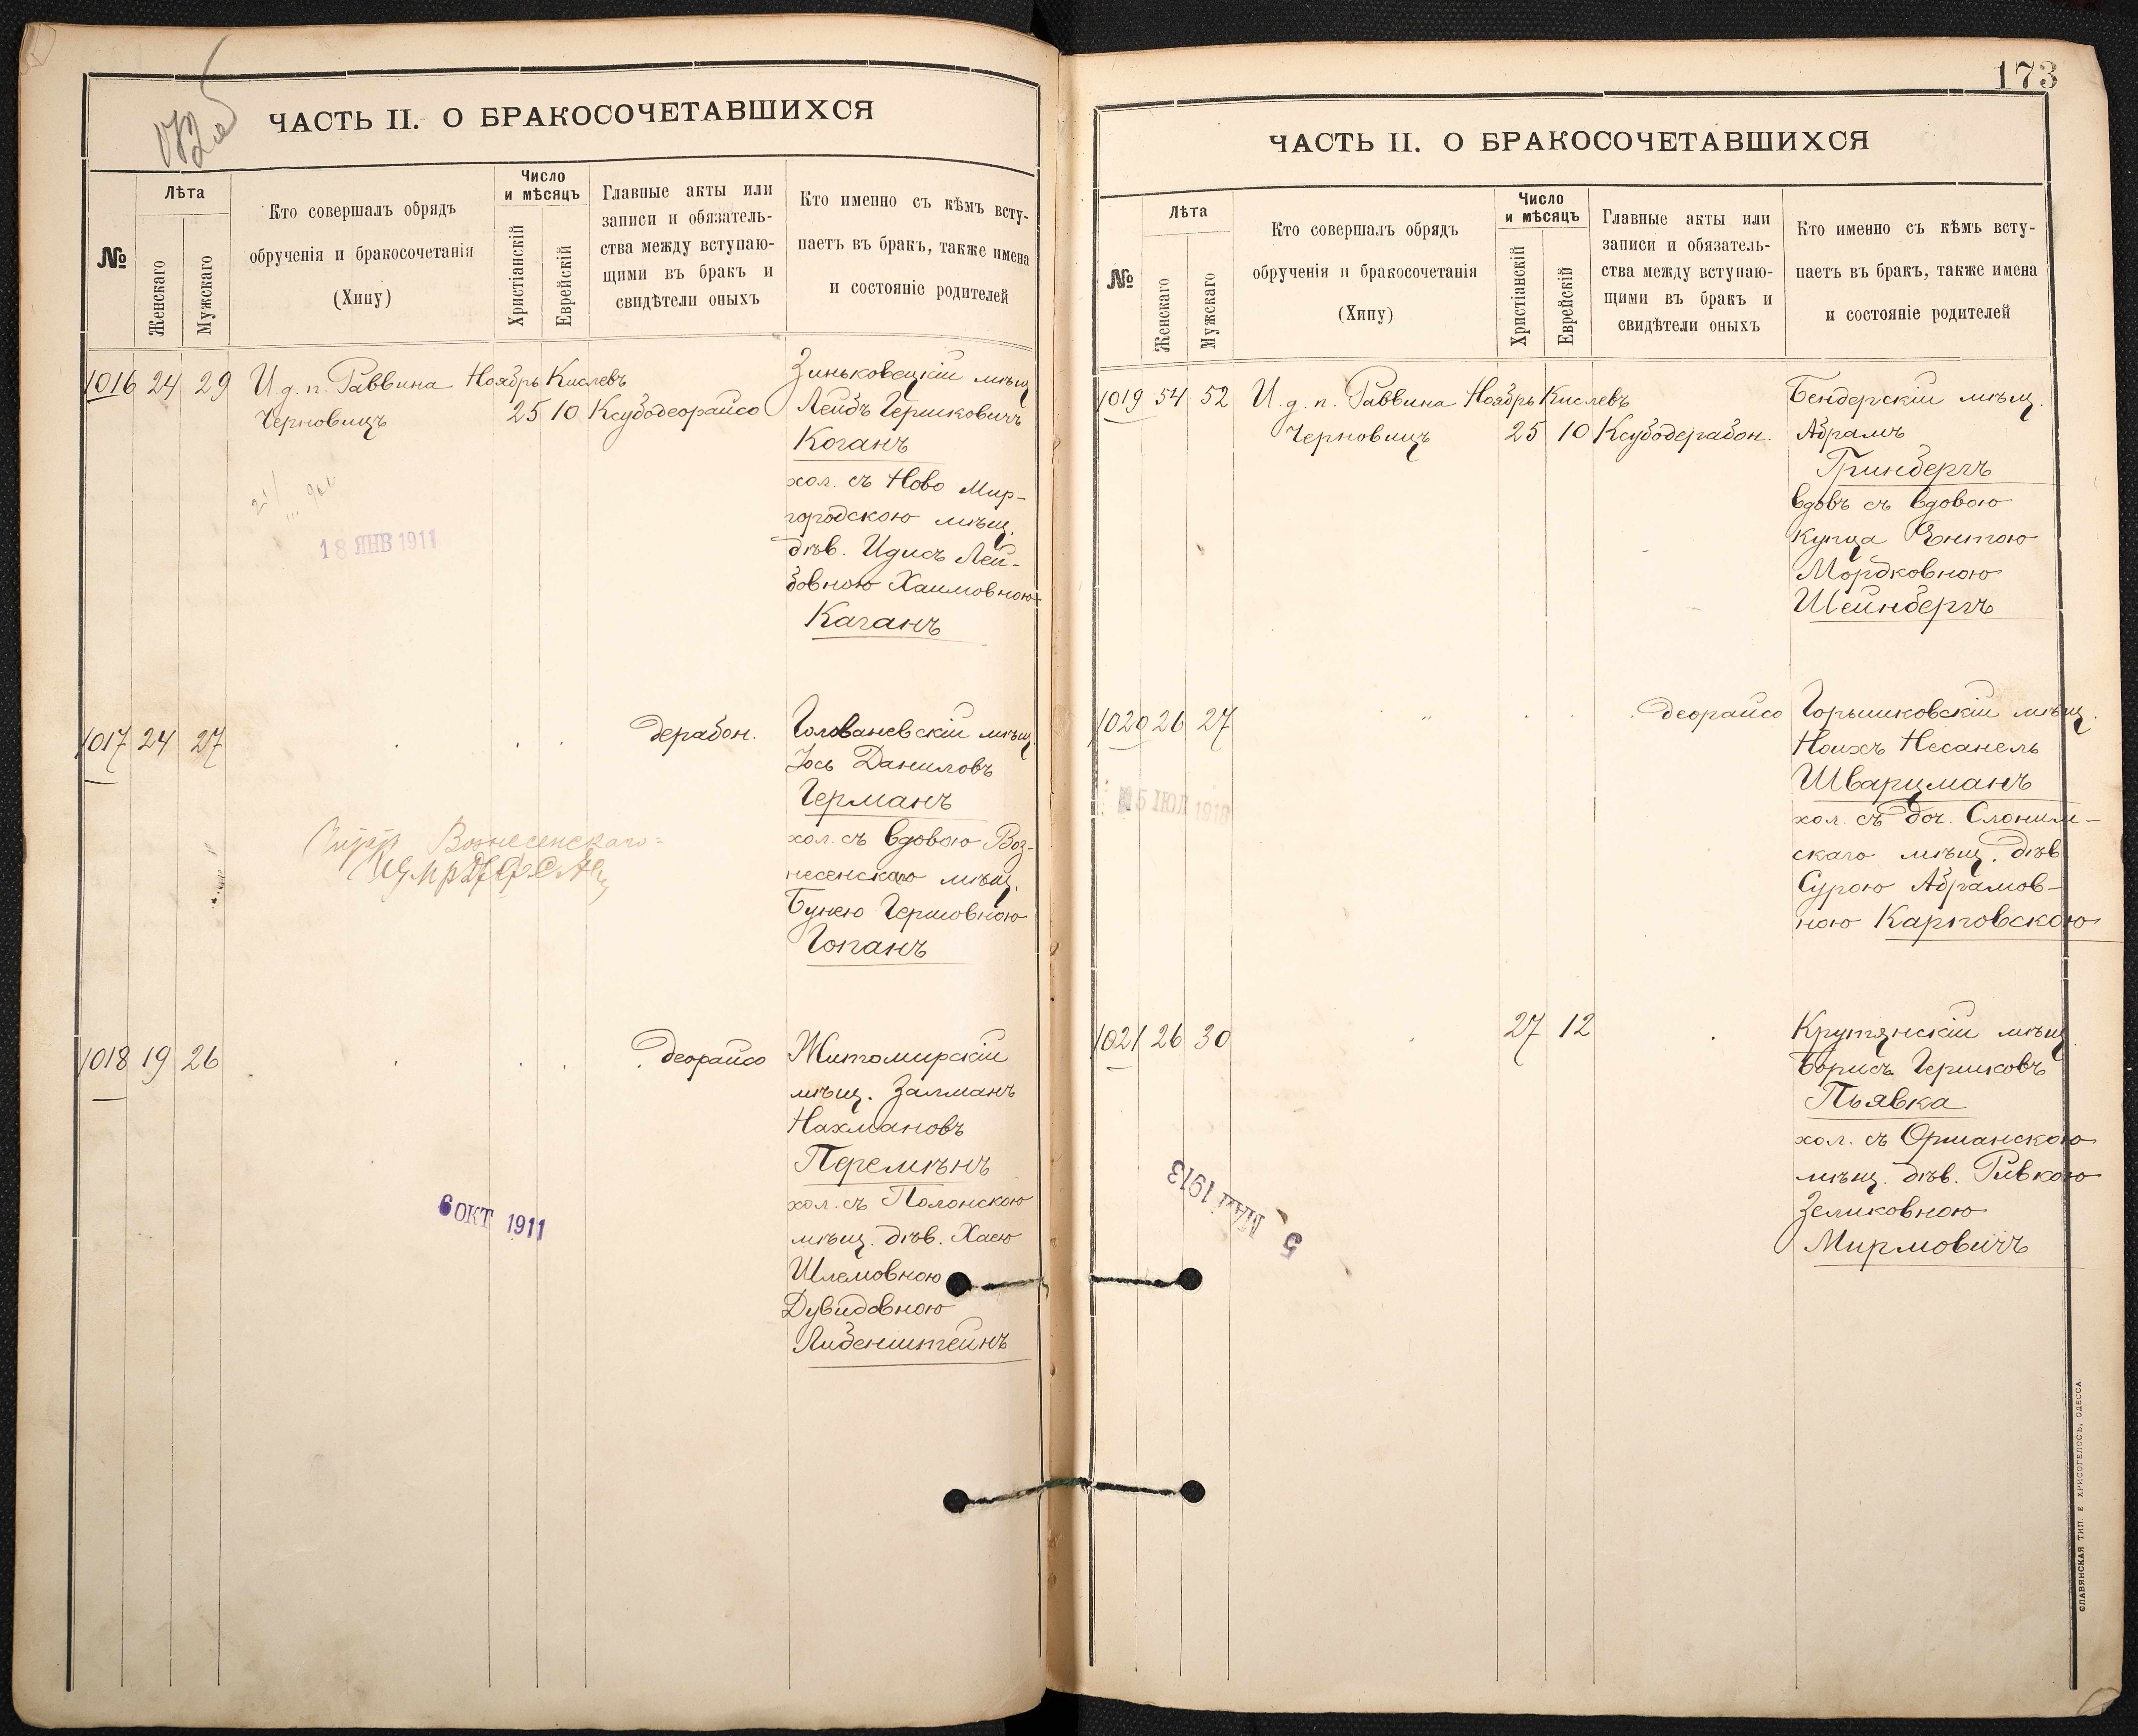 ЧАСТЬ II. О БРАКОСОЧЕТАВШИХСЯ
№
Лѣта
Женскаго
Мужскаго
Кто совершалъ обрядъ
обрученія и бракосочетанія
(Хипу)
Число
и мѣсяцъ
Христіанскій
Еврейскій
Главные акты или
записи и обязатель-
ства между вступаю-
щими въ бракъ и
свидѣтели оныхъ
Кто именно съ кѣмъ всту-
паетъ въ бракъ, также имена
и состояніе родителей
1016 24 29 И. д. п. Раввина Ноябрь Кислевъ
Черновицъ 25 10 Ксубодеорайсо
Зиньковецкій мѣщ.
Лейбъ Гершковичъ
Коганъ
хол. съ Ново Мир-
городскою мѣщ.
дѣв. Идись Лей-
бовною Хаимовною
Каганъ
18 ЯНВ 1911
1017 24 27 дерабон.
Голованевскій мѣщ.
Іось Даниловъ
Германъ
хол. съ вдовою Воз-
несенскаго мѣщ.
Бунею Гершовною
Гопанъ
Вознесенскаго
1018 19 26 деорайсо
Житомирскій
мѣщ. Залманъ
Нахмановъ
Перемѣнъ
хол. съ Полонскою
мѣщ. дѣв. Хаею
Шлемовною
Дувидовною
Либенштейнъ
6 ОКТ 1911
173
ЧАСТЬ II. О БРАКОСОЧЕТАВШИХСЯ
№
Лѣта
Женскаго
Мужскаго
Кто совершалъ обрядъ
обрученія и бракосочетанія
(Хипу)
Число
и мѣсяцъ
Христіанскій
Еврейскій
Главные акты или
записи и обязатель-
ства между вступаю-
щими въ бракъ и
свидѣтели оныхъ
Кто именно съ кѣмъ всту-
паетъ въ бракъ, также имена
и состояніе родителей
1019 54 52 И. д. п. Раввина Ноябрь Кислевъ
Черновицъ 25 10 Ксубодерабон.
Бендерскій мѣщ.
Абрамъ
Гринбергъ
вдовъ съ вдовою
купца Энтою
Мордковною
Шейнбергъ
1020 26 27 " деорайсо
Горышковскій мѣщ.
Ноихъ Несанель
Шварцманъ
хол. съ доч. Слоним-
скаго мѣщ. дѣв.
Сурою Абрамов-
ною Карповскою
5 ІЮЛ
1021 26 30 27 12
Крутянскій мѣщ.
Борисъ Гершковъ
Пьявка
хол. съ Оршанскою
мѣщ. дѣв. Ривкою
Зеликовною
Мирмовичъ
5 МАЙ 1913
СЛАВЯНСКАЯ ТИП. Е ХРИСОГЕЛОСЪ, ОДЕССА.